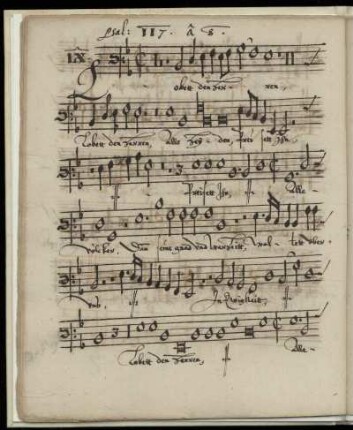 Psal: 117. â 8.
IX
Lobett den Herren,
Lobett den Herren, Alle Heyden, Preisett Ihn,
Preisett Ihn, Alle
völcker, Den seine gnad vnd warheitt, walttett vber
vns, In Ewigkeit,
Lobett den Herren, Alle